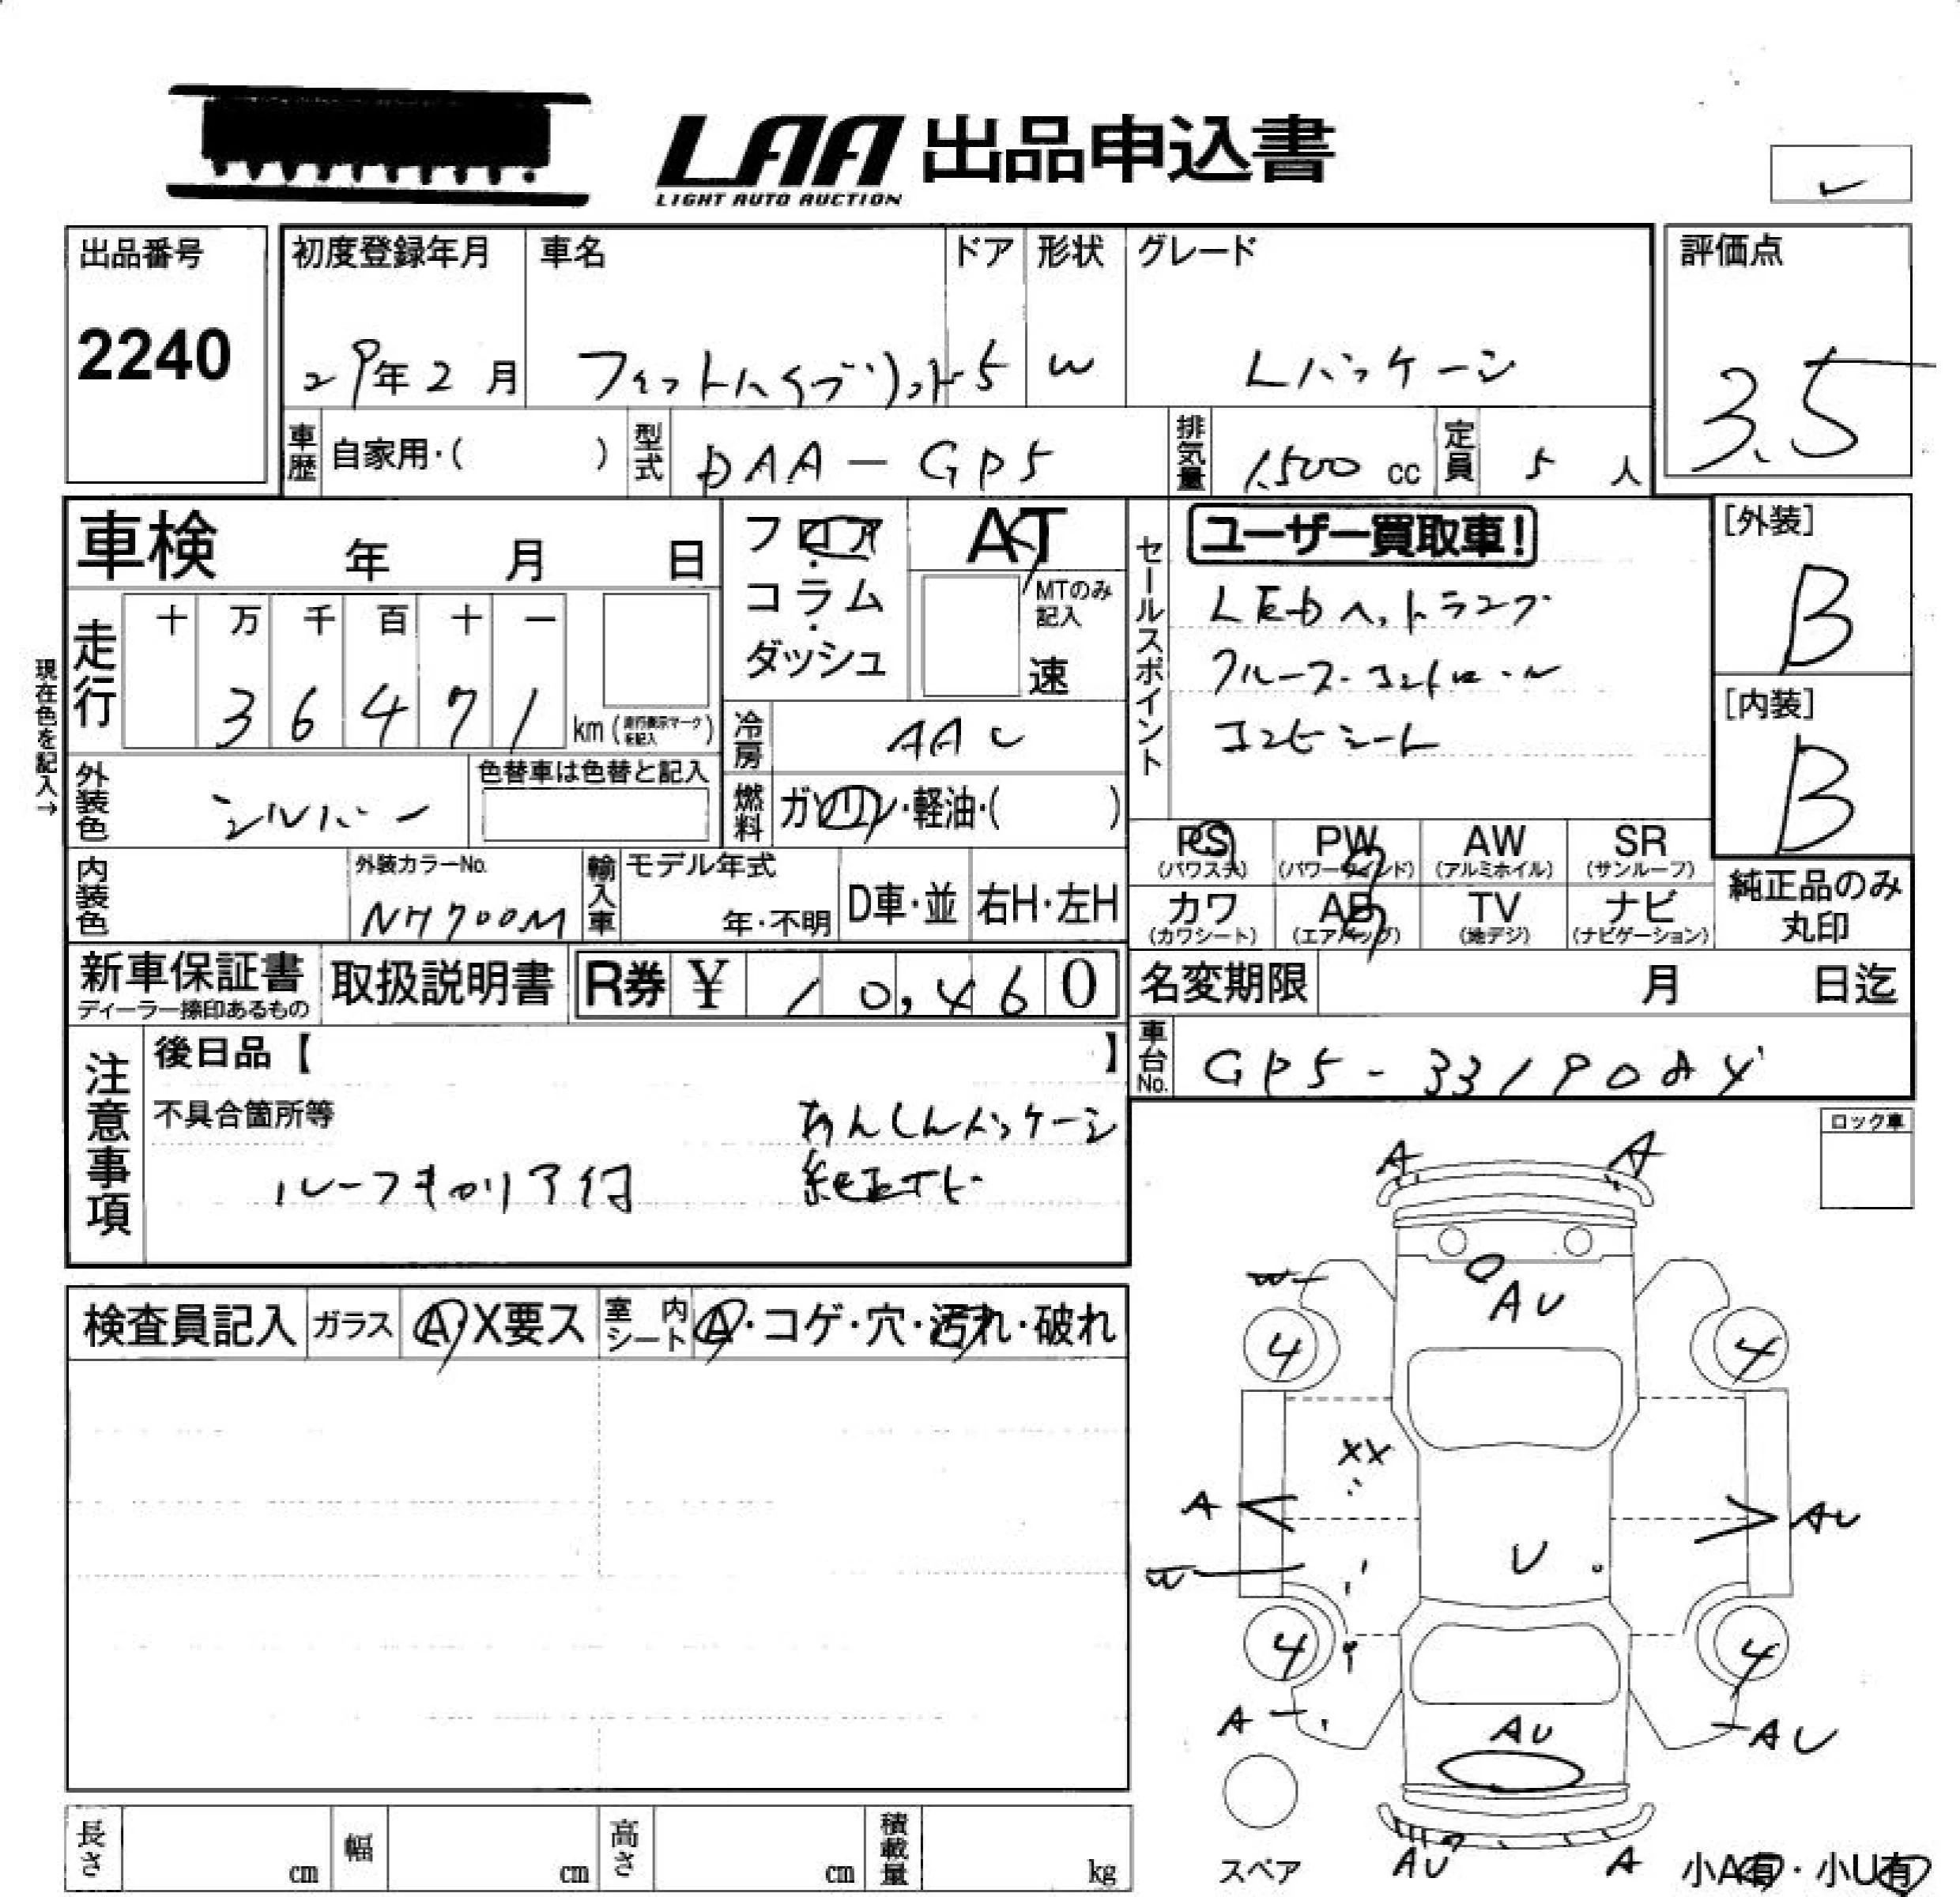 LAA 出品申込書
LIGHT AUTO AUCTION
出品番号
2240
初度登録年月
29年2月
車名
フィットハイブリッド
ドア
5
形状
W
グレード
Lパッケージ
評価点
3.5
車歴 自家用・( )
型式 DAA-GP5
排気量 1,500 cc
定員 5 人
車検 年 月 日
フロア
・
コラム
・
ダッシュ
AT
MTのみ
記入
速
セールスポイント
ユーザー買取車!
LEDヘッドランプ
クルーズ・コントロール
コンビシート
[外装]
B
[内装]
B
現在色を記入→
走行
十 万 千 百 十 一
3 6 4 7 1 km (走行表示マークを記入)
冷房 AAC
外装色 シルバー
色替車は色替と記入
燃料 ガソリン・軽油・( )
PS
(パワステ)
PW
(パワーウィンド)
AW
(アルミホイル)
SR
(サンルーフ)
カワ
(カワシート)
AB
(エアバッグ)
TV
(地デジ)
ナビ
(ナビゲーション)
純正品のみ
丸印
内装色
外装カラーNo.
NH700M
輸入車
モデル年式
年・不明
D車・並
右H・左H
新車保証書
ディーラー捺印あるもの
取扱説明書
R券 ¥ 10,460
名変期限 月 日迄
車台No. GP5-33190
注意事項
後日品【 】
不具合箇所等
あんしんパッケージ
ルーフキャリア付
ロック車
検査員記入
ガラス A・X要ス
室内シート A・コゲ・穴・汚れ・破れ
A A
W
AU
4 4
XX
A AU
W
U
4 4
A
AU
AU
スペア
AU A
小A有・小U有
長さ cm
幅 cm
高さ cm
積載量 kg